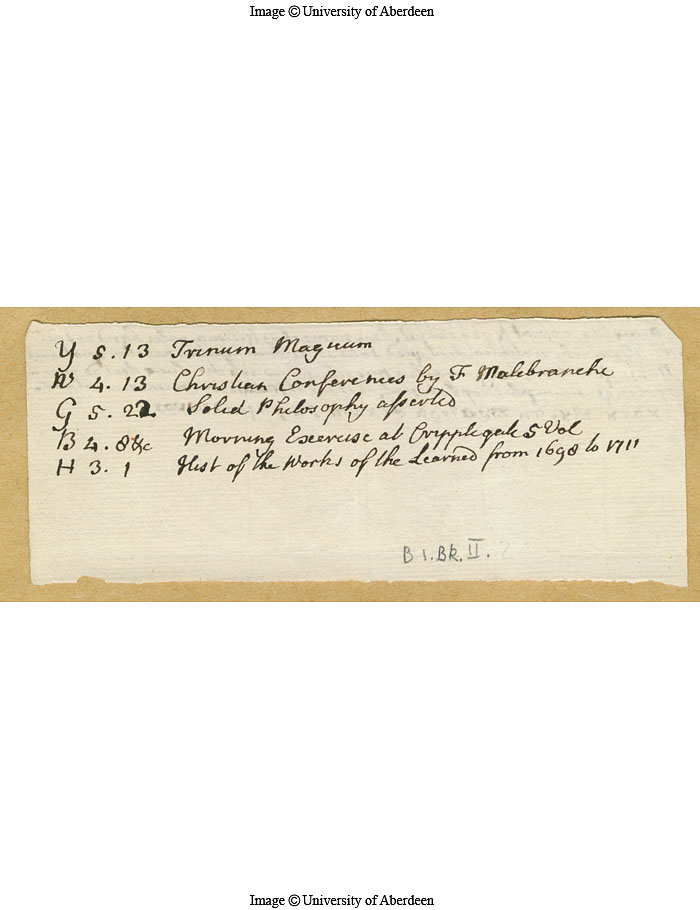 Image © University of Aberdeen
Y 5.13 Trinum Magnum
W 4.13 Christian Conferences by F Malebranche
G 5.22 Solid Philosophy asserted
B 4.8&c Morning Exercise at Cripplegate 5 Vol
H 3.1 Hist of the Works of the Learned from 1698 to 1711
B 1. Bk. II.
Image © University of Aberdeen